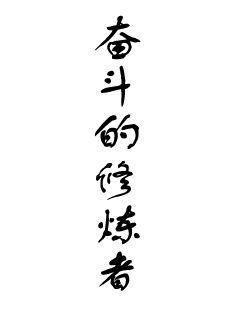 奋斗的修炼者